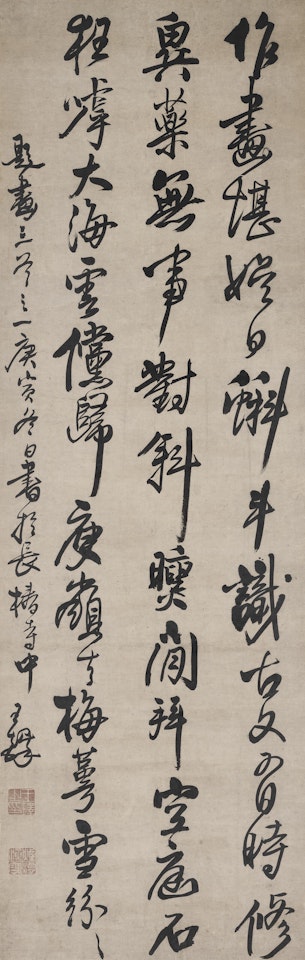 作畫堪娛日蝌斗識古文有時修
異藥無事對斜曛閒拜空庭石
狂嘑大海雲儻歸庾嶺去梅萼雪紛〻
題畫三首之一庚寅冬日書於長椿寺中 王鐸